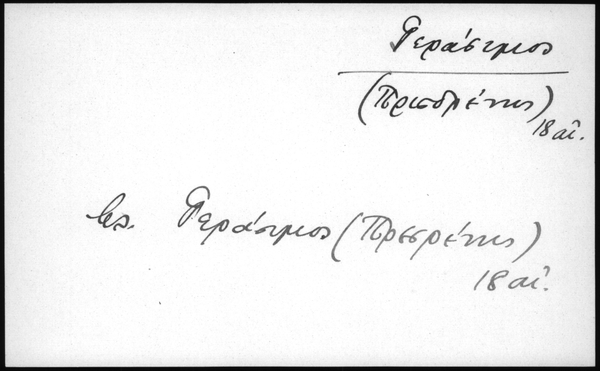 Γεράσιμος
(Πρισρένης)
18 αἰ.
βλ. Γεράσιμος (Πρεσρένης)
18 αἰ.